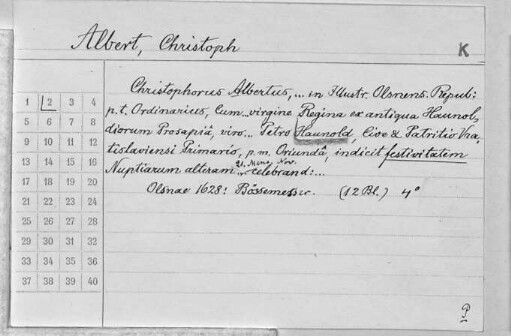 Albert, Christoph
K
Christophorus Albertus, ... in Illustr. Olsnens. Republ:
p. t. Ordinarius, Cum... virgine Regina ex antiqua Haunol,
diorum Prosapiâ, viro... Petro Haunold, Cive & Patritio Vra,
tislaviensi Primario, p. m. Oriundâ, indicit festivitatem
Nuptiarum alteram... celebrand:...
Olsnae 1628: Bössemesser. (12 Bl.) 4°
1 2 3 4
5 6 7 8
9 10 11 12
13 14 15 16
17 18 19 20
21 22 23 24
25 26 27 28
29 30 31 32
33 34 35 36
37 38 39 40
P